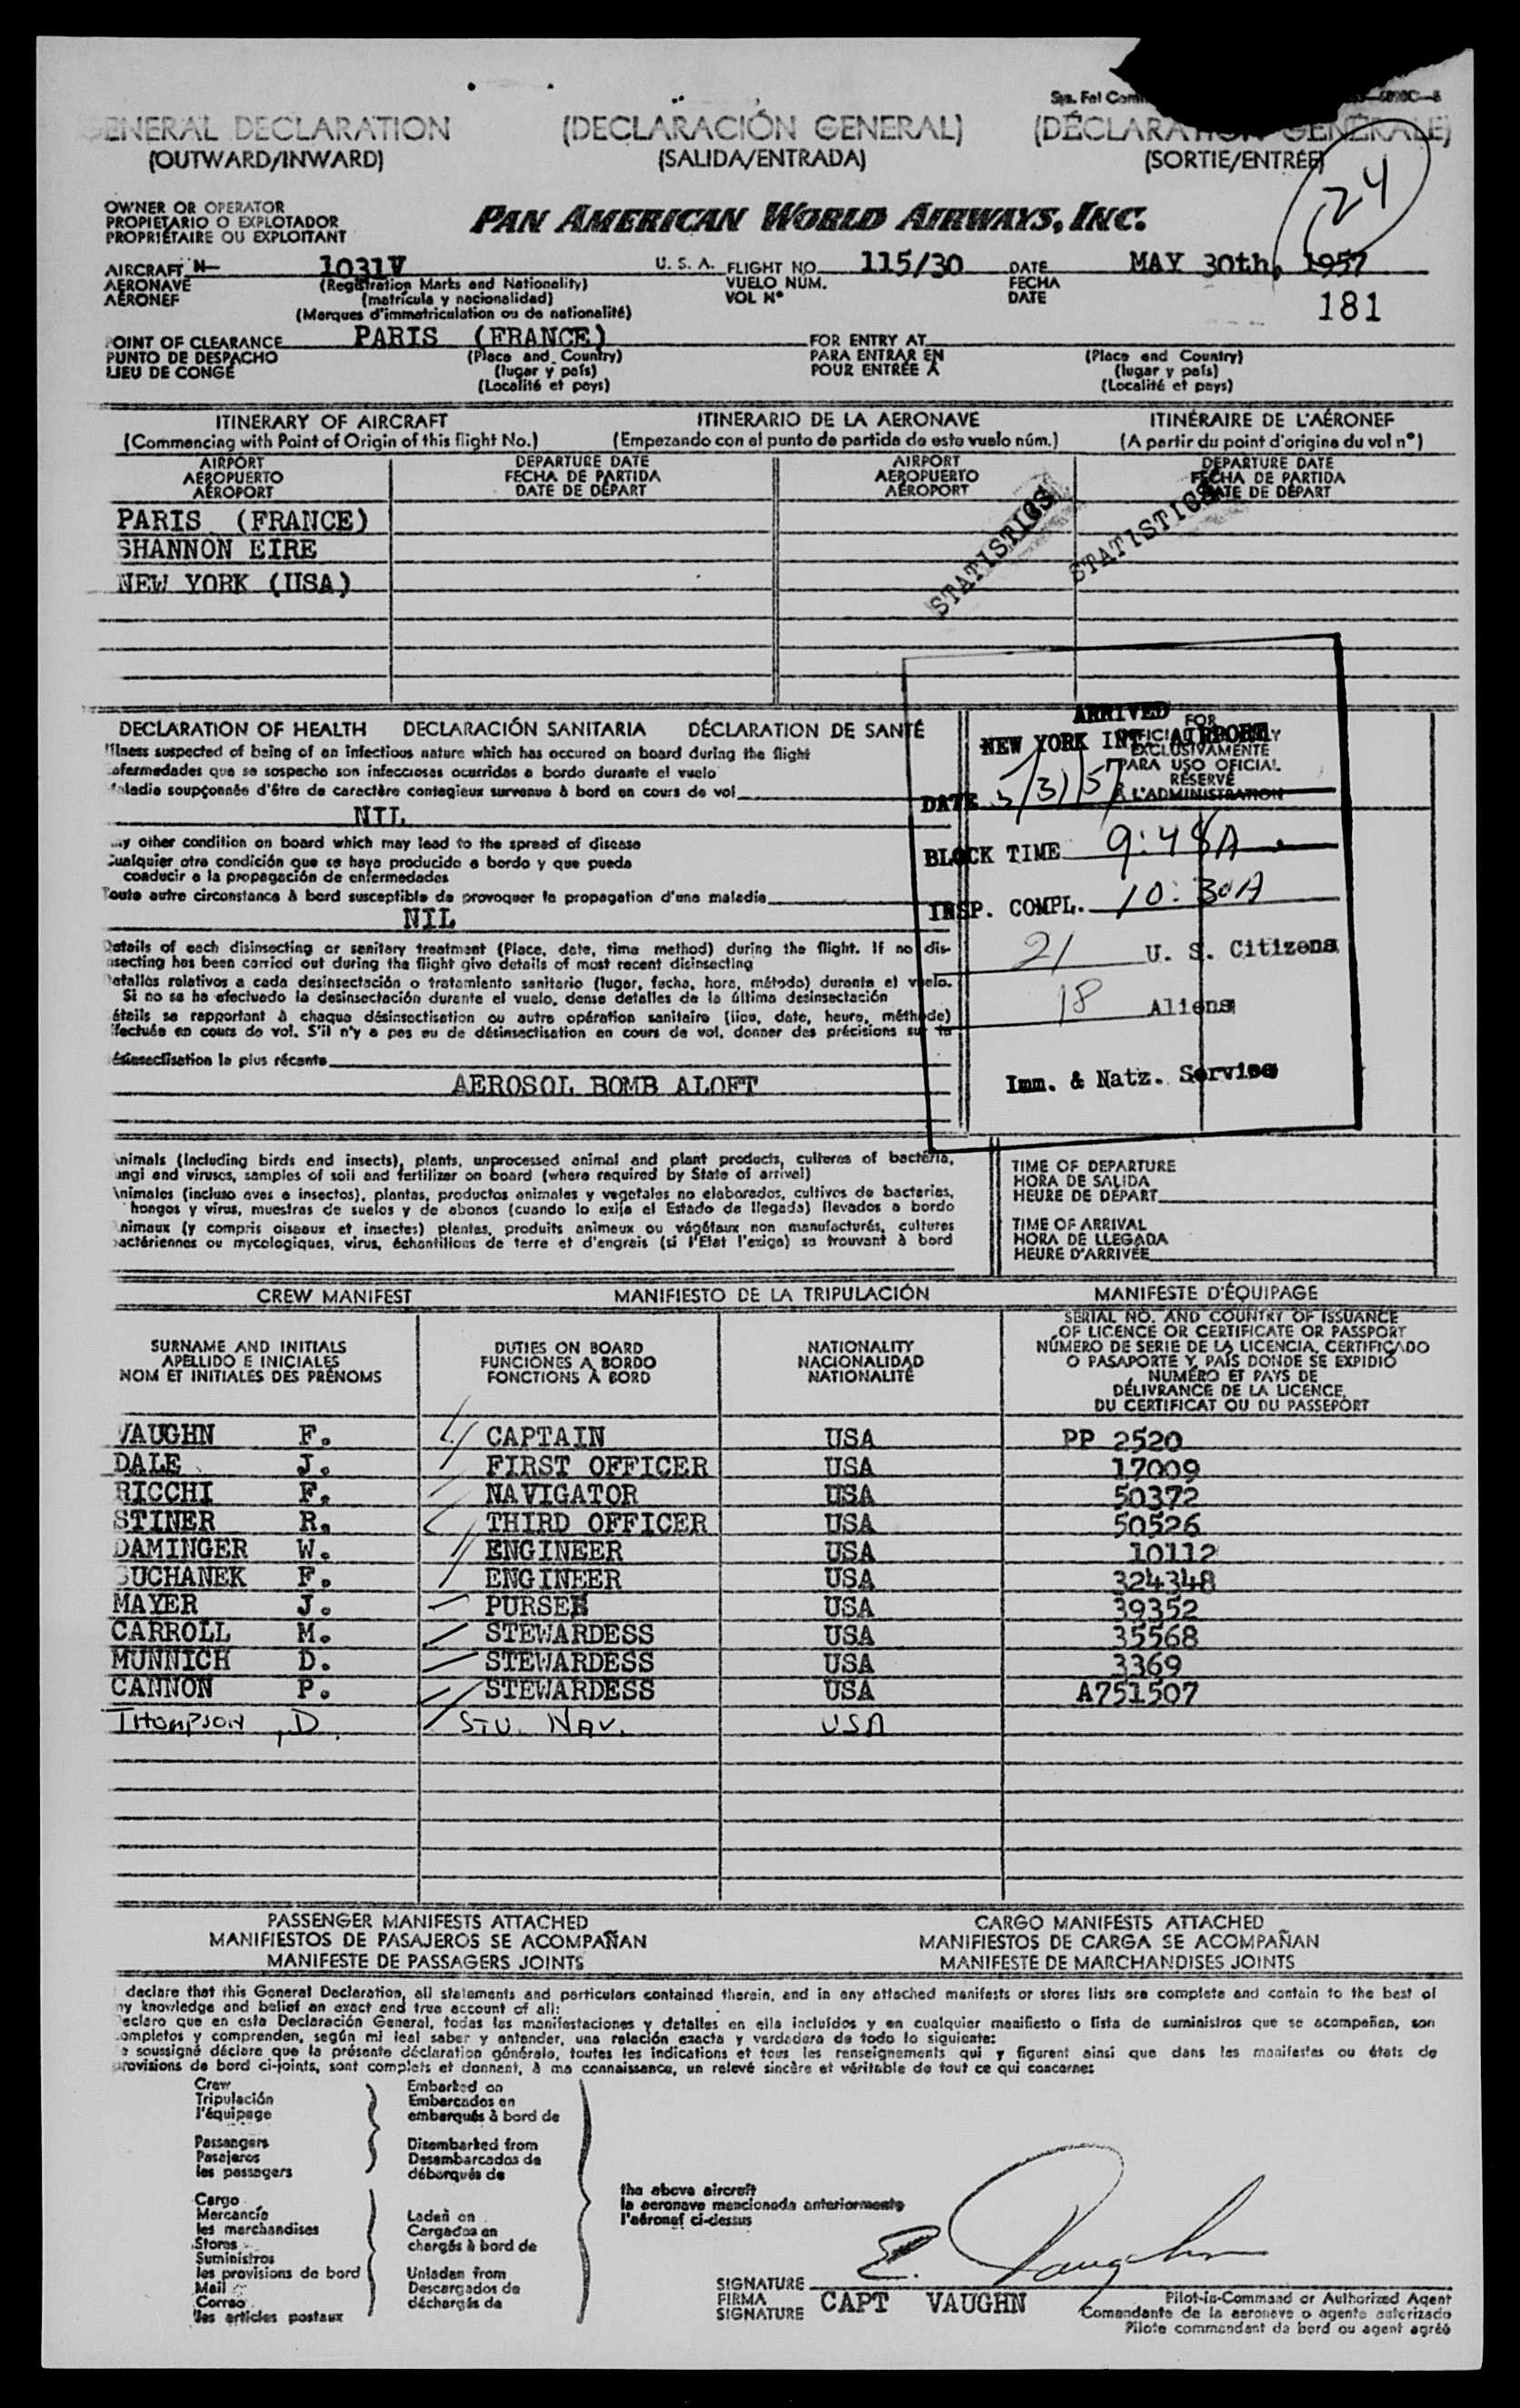 ENERAL DECLARATION (DECLARACIÓN GENERAL)
(OUTWARD/INWARD) (SALIDA/ENTRADA) (SORTIE/ENTRÉE)
24
OWNER OR OPERATOR
PROPIETARIO O EXPLOTADOR
PROPRIÉTAIRE OU EXPLOITANT
PAN AMERICAN WORLD AIRWAYS, INC.
AIRCRAFT N 1031V U. S. A. FLIGHT NO. 115/30 DATE MAY 30th, 1957
AERONAVE (Registration Marks and Nationality) VUELO NÚM. FECHA
AÉRONEF (matrícula y nacionalidad) VOL Nº DATE 181
(Marques d'immatriculation ou de nationalité)
OINT OF CLEARANCE PARIS (FRANCE) FOR ENTRY AT
PUNTO DE DESPACHO (Place and Country) PARA ENTRAR EN (Place and Country)
LIEU DE CONGÉ (lugar y país) POUR ENTRÉE À (lugar y país)
(Localité et pays) (Localité et pays)
ITINERARY OF AIRCRAFT ITINERARIO DE LA AERONAVE ITINÉRAIRE DE L'AÉRONEF
(Commencing with Point of Origin of this flight No.) (Empezando con el punto de partida de este vuelo núm.) (A partir du point d'origine du vol nº)
AIRPORT DEPARTURE DATE AIRPORT DEPARTURE DATE
AEROPUERTO FECHA DE PARTIDA AEROPUERTO FECHA DE PARTIDA
AÉROPORT DATE DE DÉPART AÉROPORT DATE DE DÉPART
PARIS (FRANCE)
SHANNON EIRE
NEW YORK (USA)
STATISTICS STATISTICS
DECLARATION OF HEALTH DECLARACIÓN SANITARIA DÉCLARATION DE SANTÉ
Illness suspected of being of an infectious nature which has occured on board during the flight
nfermedades que se sospecha son infecciosas ocurridas a bordo durante el vuelo
aladie soupçonnée d'être de caractère contagieux survenue à bord en cours de vol
NIL
ny other condition on board which may lead to the spread of disease
Cualquier otra condición que se haya producido a bordo y que pueda
conducir a la propagación de enfermedades
Toute autre circonstance à bord susceptible de provoquer la propagation d'une maladie
NIL
Details of each disinsecting or sanitary treatment (Place, date, time method) during the flight. If no dis-
nsecting has been carried out during the flight give details of most recent disinsecting
Detalles relativos a cada desinsectación o tratamiento sanitario (lugar, fecha, hora, método) durante el vuelo.
Si no se ha efectuado la desinsectación durante el vuelo, dense detalles de la última desinsectación
étails se rapportant à chaque désinsectisation ou autre opération sanitaire (lieu, date, heure, méthode)
ffectuée en cours de vol. S'il n'y a pas eu de désinsectisation en cours de vol, donner des précisions sur la
désinsectisation la plus récente
AEROSOL BOMB ALOFT
FOR
EXCLUSIVAMENTE
PARA USO OFICIAL
RÉSERVÉ
À L'ADMINISTRATION
ARRIVED
NEW YORK INT. AIRPORT
DATE 5/31/57
BLOCK TIME 9:48A
INSP. COMPL. 10:30A
21 U. S. Citizens
18 Aliens
Imm. & Natz. Service
Animals (Including birds and insects), plants, unprocessed animal and plant products, cultures of bacteria,
ungi and viruses, samples of soil and fertilizer on board (where required by State of arrival)
Animales (incluso aves e insectos), plantas, productos animales y vegetales no elaborados, cultivos de bacterias,
hongos y virus, muestras de suelos y de abonos (cuando lo exija el Estado de llegada) llevados a bordo
nimaux (y compris oiseaux et insectes) plantes, produits animaux ou végétaux non manufacturés, cultures
bactériennes ou mycologiques, virus, échantillons de terre et d'engrais (si l'État l'exige) se trouvant à bord
TIME OF DEPARTURE
HORA DE SALIDA
HEURE DE DÉPART
TIME OF ARRIVAL
HORA DE LLEGADA
HEURE D'ARRIVÉE
CREW MANIFEST MANIFIESTO DE LA TRIPULACIÓN MANIFESTE D'ÉQUIPAGE
SURNAME AND INITIALS
APELLIDO E INICIALES
NOM ET INITIALES DES PRÉNOMS
DUTIES ON BOARD
FUNCIONES A BORDO
FONCTIONS À BORD
NATIONALITY
NACIONALIDAD
NATIONALITÉ
SERIAL NO. AND COUNTRY OF ISSUANCE
OF LICENCE OR CERTIFICATE OR PASSPORT
NÚMERO DE SERIE DE LA LICENCIA, CERTIFICADO
O PASAPORTE Y PAÍS DONDE SE EXPIDIÓ
NUMÉRO ET PAYS DE
DÉLIVRANCE DE LA LICENCE,
DU CERTIFICAT OU DU PASSEPORT
VAUGHN F. CAPTAIN USA PP 2520
DALE J. FIRST OFFICER USA 17009
RICCHI F. NAVIGATOR USA 50372
STINER R. THIRD OFFICER USA 50526
DAMINGER W. ENGINEER USA 10112
UCHANEK F. ENGINEER USA 324348
MAYER J. PURSER USA 39352
CARROLL M. STEWARDESS USA 35568
MUNNICH D. STEWARDESS USA 3369
CANNON P. STEWARDESS USA A751507
THOMPSON, D. STU. NAV. USA
PASSENGER MANIFESTS ATTACHED CARGO MANIFESTS ATTACHED
MANIFIESTOS DE PASAJEROS SE ACOMPAÑAN MANIFIESTOS DE CARGA SE ACOMPAÑAN
MANIFESTE DE PASSAGERS JOINTS MANIFESTE DE MARCHANDISES JOINTS
declare that this General Declaration, all statements and particulars contained therein, and in any attached manifests or stores lists are complete and contain to the best of
my knowledge and belief an exact and true account of all:
eclaro que en esta Declaración General, todas las manifestaciones y detalles en ella incluídos y en cualquier manifiesto o lista de suministros que se acompañan, son
completos y comprenden, según mi leal saber y entender, una relación exacta y verdadera de todo lo siguiente:
e soussigné déclare que la présente déclaration générale, toutes les indications et tous les renseignements qui y figurent ainsi que dans les manifestes ou états de
provisions de bord ci-joints, sont complets et donnent, à ma connaissance, un relevé sincère et véritable de tout ce qui concerne:
Crew Embarked on
Tripulación Embarcados en
l'équipage embarqués à bord de
Passengers Disembarked from
Pasajeros Desembarcados de
les passagers débarqués de
the above aircraft
la aeronave mencionada anteriormente
l'aéronef ci-dessus
Cargo
Mercancía Laden on
les marchandises Cargados en
Stores chargés à bord de
Suministros
les provisions de bord Unladen from
Mail Descargados de
Correo déchargés de
les articles postaux
E. Vaughn
SIGNATURE
FIRMA CAPT VAUGHN
SIGNATURE
Pilot-in-Command or Authorized Agent
Comandante de la aeronave o agente autorizado
Pilote commandant de bord ou agent agréé